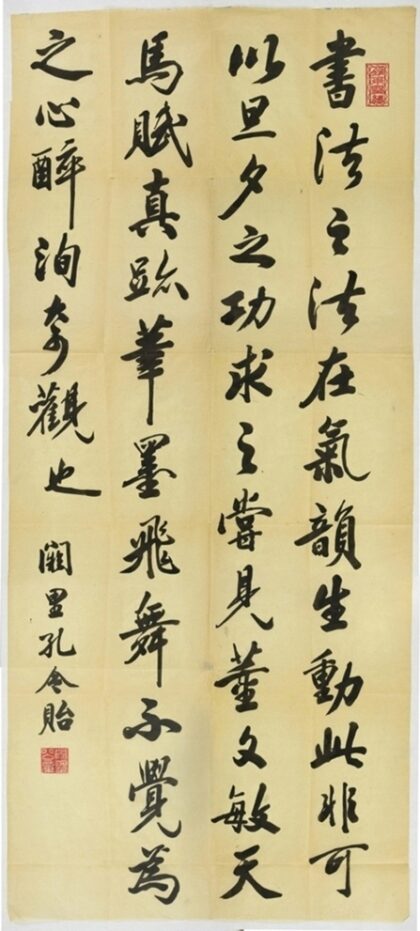 書法之法在氣韻生動此非可
以旦夕之功求之嘗見董文敏天
馬賦真跡筆墨飛舞不覺為
之心醉洵奇觀也
闕里孔令貽